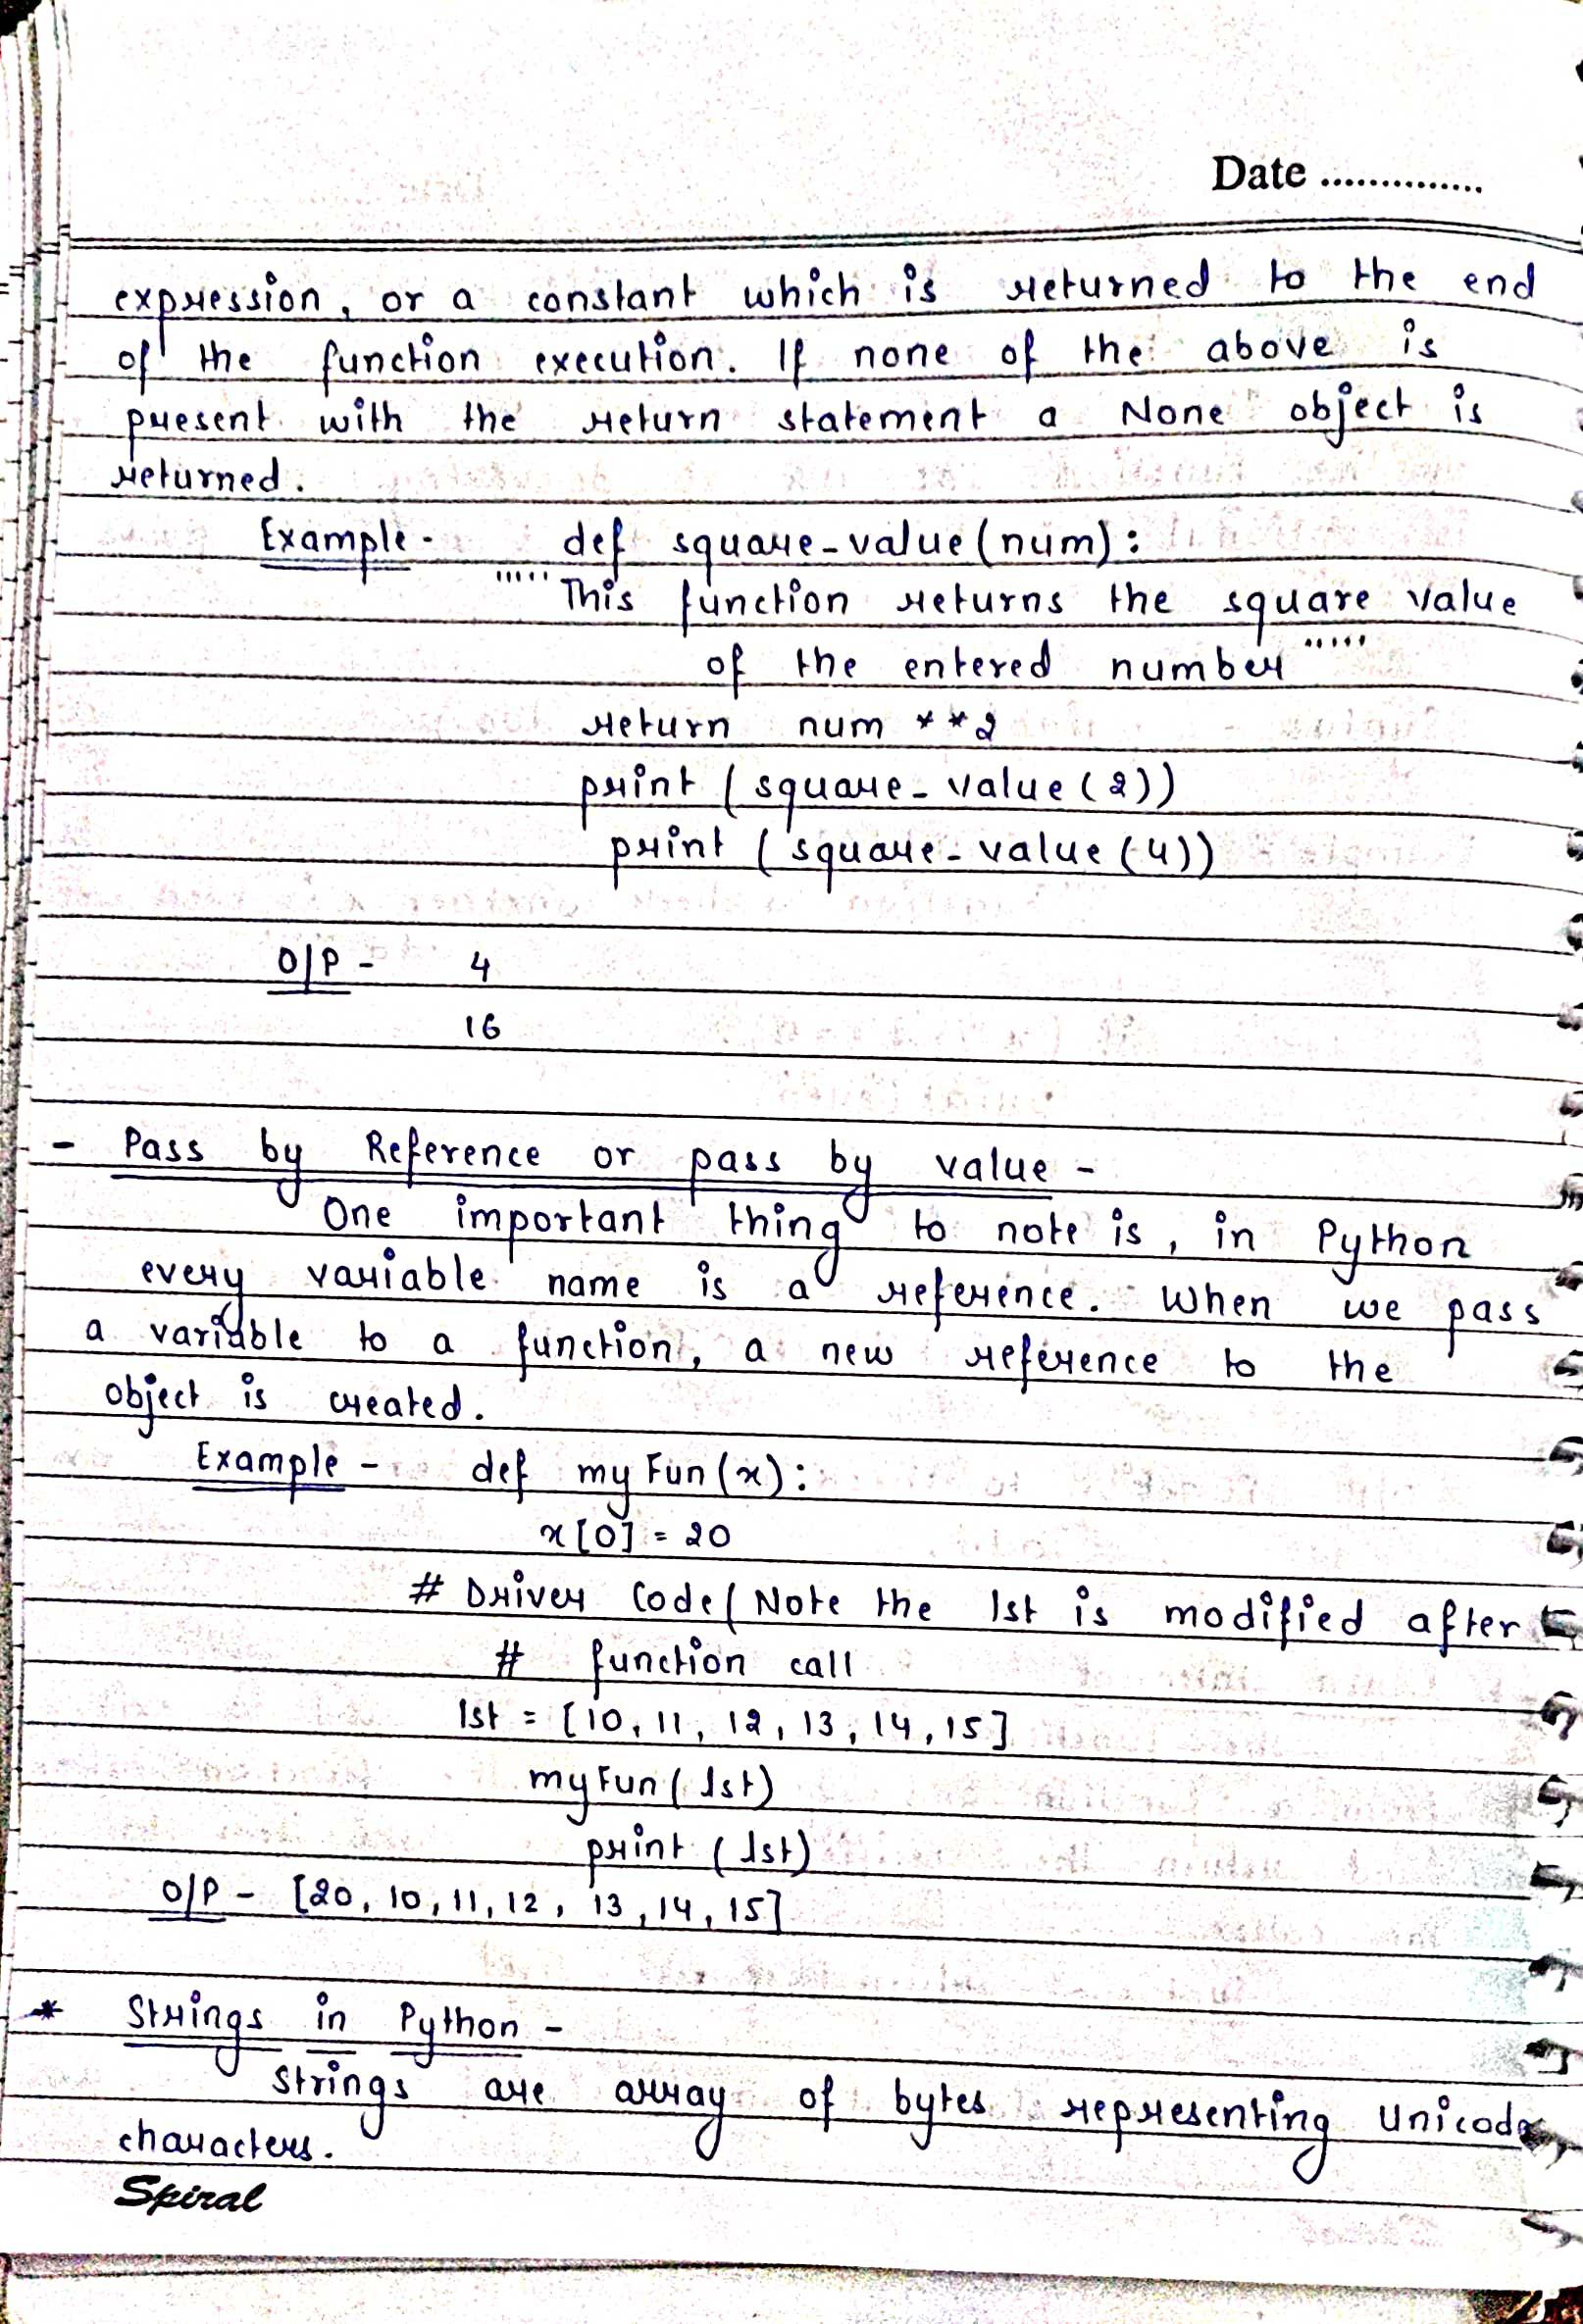 Date ..............
expression, or a constant which is returned to the end
of the function execution. If none of the above is
present with the return statement a None object is
returned.
Example - def square-value(num):
""""" This function returns the square value
of the entered number """""
return num **2
print (square-value(2))
print (square-value(4))
O/P - 4
16
- Pass by Reference or pass by value -
One important thing to note is, in Python
every variable name is a reference. When we pass
a variable to a function, a new reference to the
object is created.
Example - def myFun(x):
x[0] = 20
# Driver Code( Note the lst is modified after
# function call
lst = [10, 11, 12, 13, 14, 15]
myFun( lst)
print ( lst)
O/P - [20, 10, 11, 12, 13, 14, 15]
* Strings in Python -
Strings are array of bytes representing Unicode
characters.
Spiral